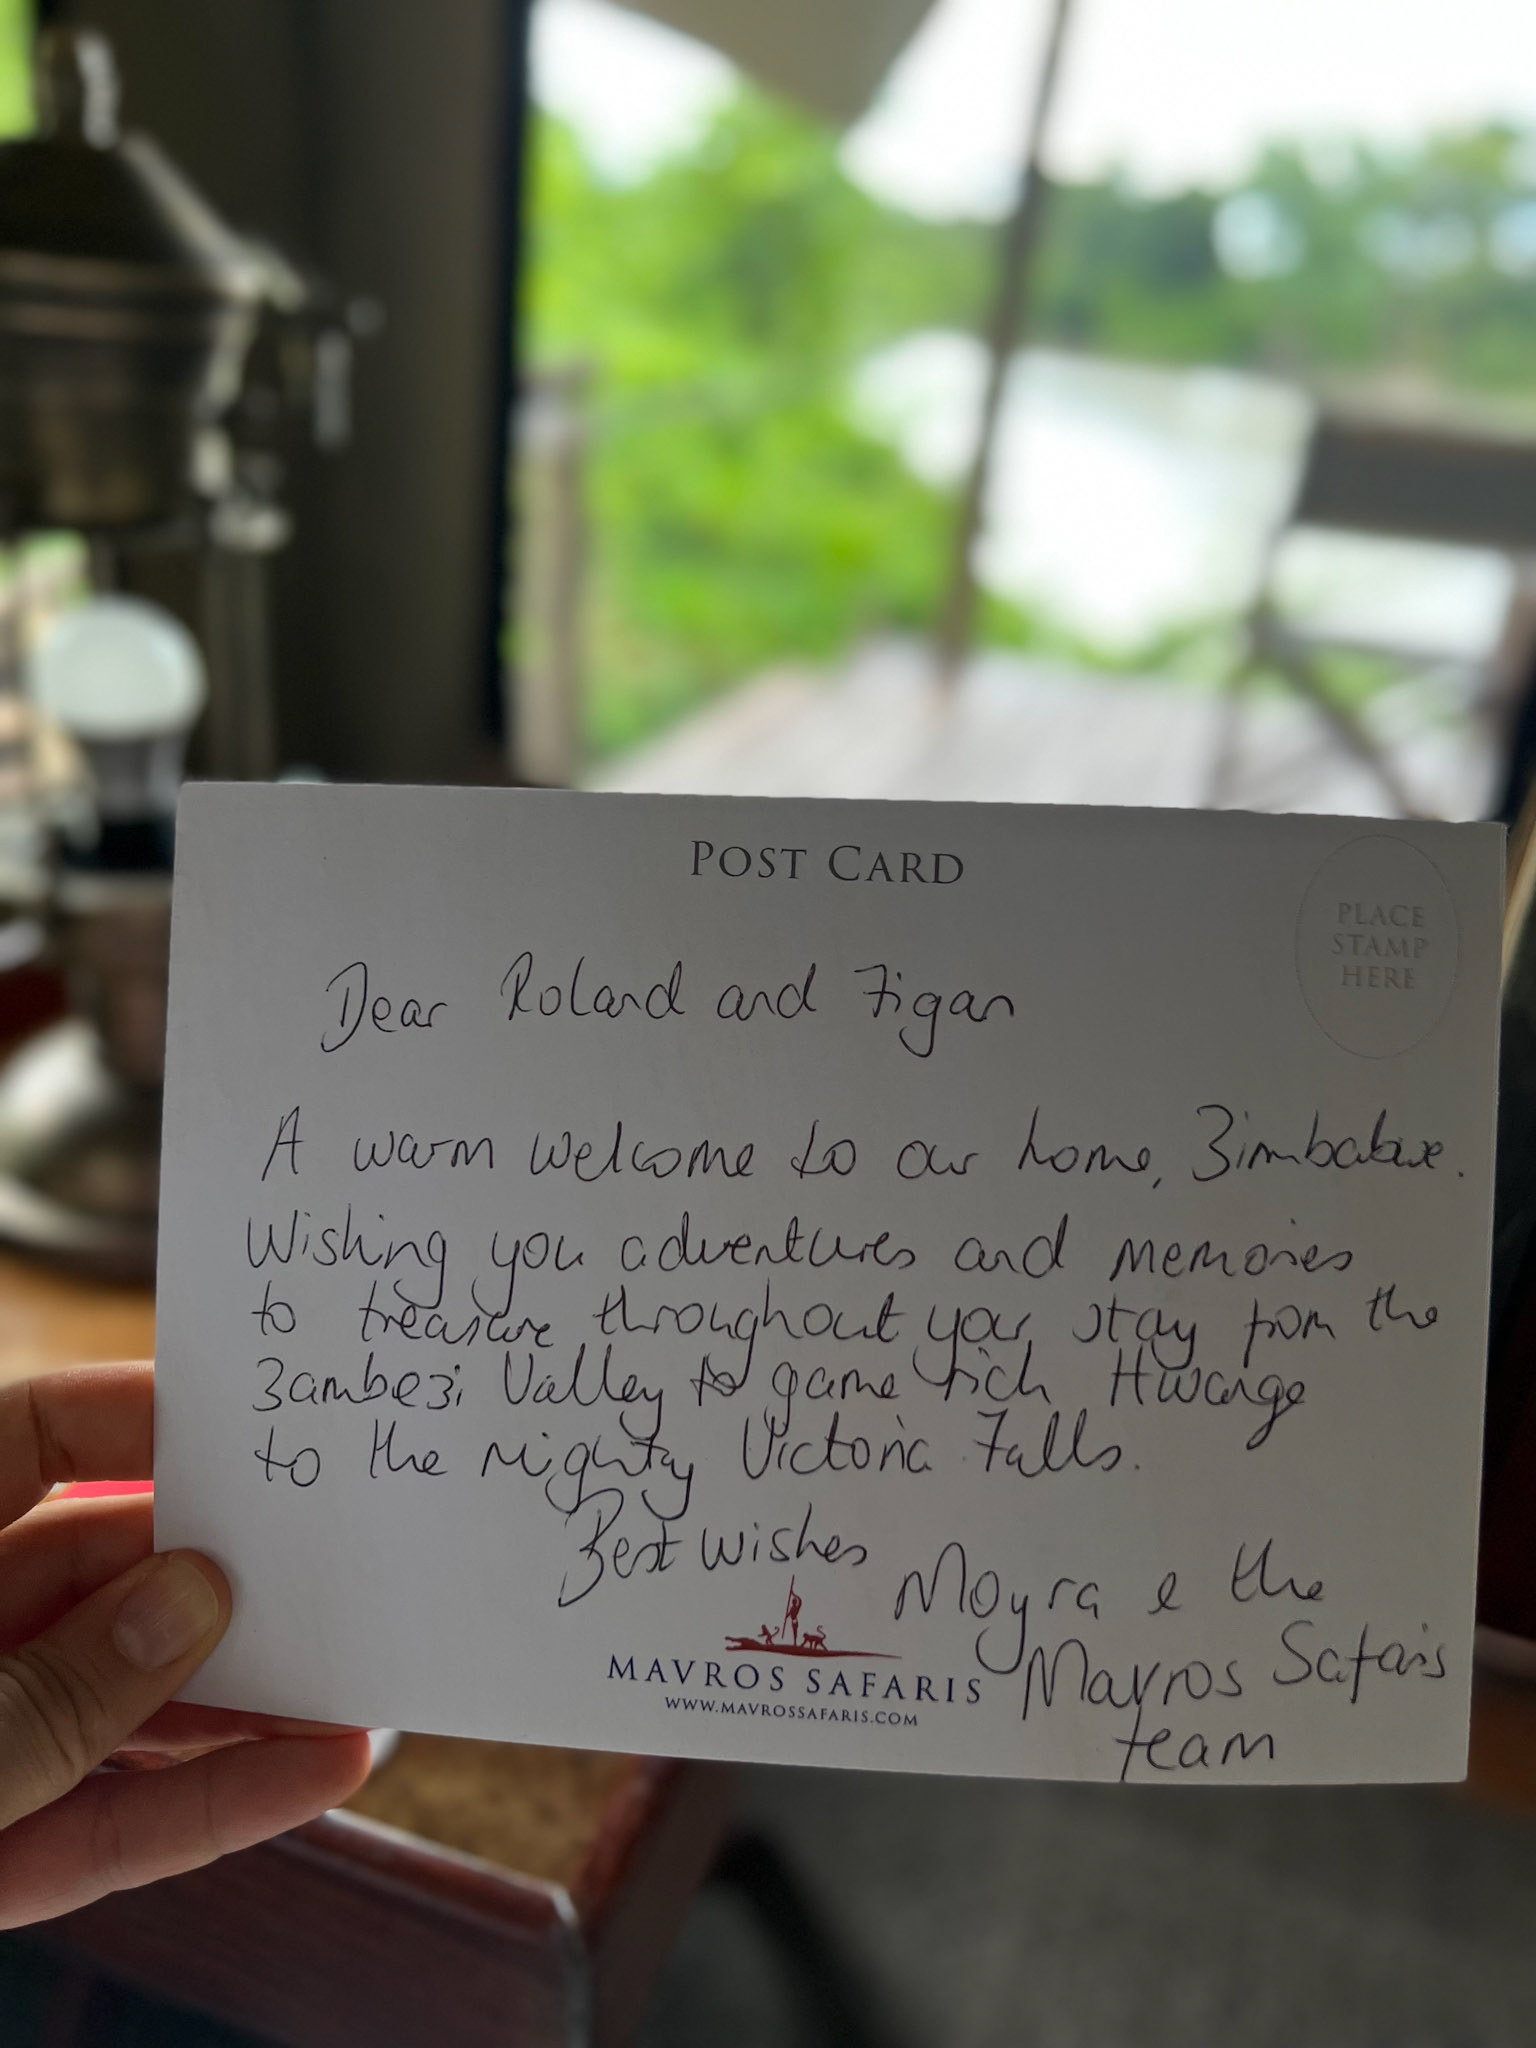 POST CARD
PLACE
STAMP
HERE
Dear Roland and Figan
A warm welcome to our home, Zimbabwe.
Wishing you adventures and memories
to treasure throughout your stay from the
Zambezi Valley to game rich Hwange
to the mighty Victoria Falls.
Best wishes
Moyra & the
Mavros Safaris
team
MAVROS SAFARIS
WWW.MAVROSSAFARIS.COM